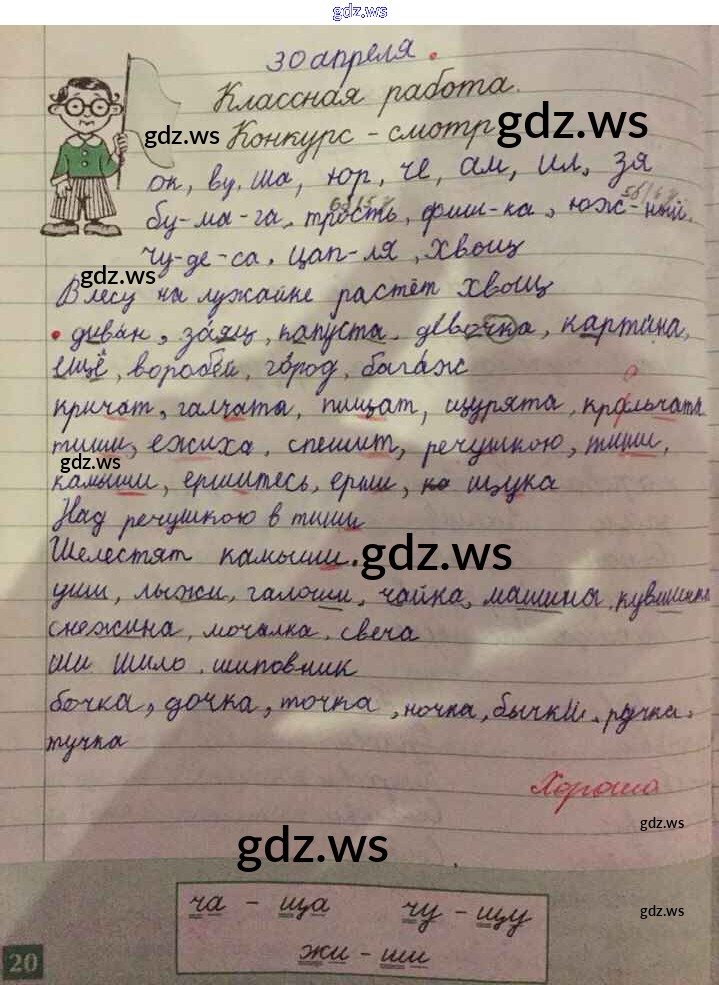 gdz.ws
30 апреля.
Классная работа.
Конкурс - смотр
gdz.ws
gdz.ws
ок, ву, ша, юр, че, ам, ил, зя
бу-ма-га, трость, фиш-ка, юж-ный.
чу-де-са, цап-ля, хвощ
gdz.ws
В лесу на лужайке растёт хвощ
диван, заяц, капуста, девочка, картина,
gdz.ws
ещё, воробей, город, багаж
кричат, галчата, пищат, щурята, крольчата
тиши, ежиха, спешит, речушкою, тиши,
gdz.ws
камыши, ершитесь, ерши, щука
Над речушкою в тиши
Шелестят камыши.
gdz.ws
уши, лыжи, галоши, чайка, машины, кувшинка
снежина, мочалка, свеча
ши шило, шиповник
бочка, дочка, точка, ночка, бычки, ручка,
тучка
Хорошо
gdz.ws
gdz.ws
ча - ща чу - щу
gdz.ws
жи - ши
20